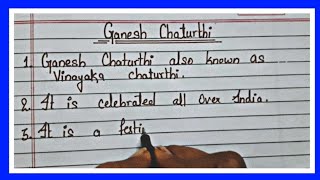 Ganesh Chaturthi
1. Ganesh Chaturthi also known as
Vinayaka chaturthi.
2. It is celebrated all over India.
3. It is a festi